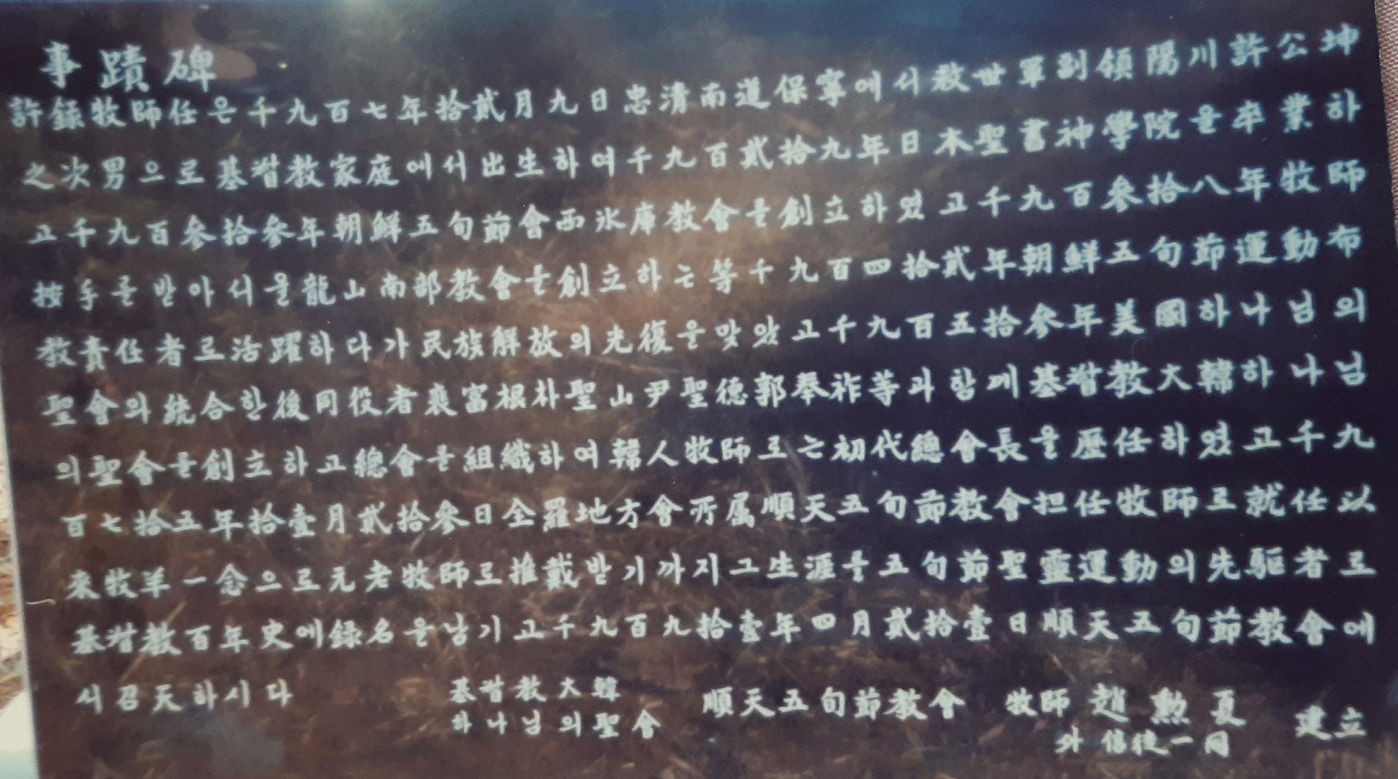 事蹟碑
許錄牧師任은千九百七年拾貳月九日忠清南道保寧에서救世軍副領陽川許公坤
之次男으로基督教家庭에서出生하여千九百貳拾九年日本聖書神學院을卒業하
고千九百參拾參年朝鮮五旬節會西氷庫教會를創立하였고千九百參拾八年牧師
按手를받아서울龍山南部教會를創立하는等千九百四拾貳年朝鮮五旬節運動布
教責任者로活躍하다가民族解放의光復을맞았고千九百五拾參年美國하나님의
聖會와統合한後同役者裵富根朴聖山尹聖德郭奉祚等과함께基督教大韓하나님
의聖會를創立하고總會를組織하여韓人牧師로는初代總會長을歷任하였고千九
百七拾五年拾壹月貳拾參日全羅地方會所属順天五旬節教會担任牧師로就任以
來牧羊一念으로元老牧師로推戴받기까지그生涯를五旬節聖靈運動의先駆者로
基督教百年史에錄名을남기고千九百九拾壹年四月貳拾壹日順天五旬節教會에
서召天하시다
基督教大韓
하나님의聖會
順天五旬節教會 牧師 趙勲夏
外 信徒一同
建立